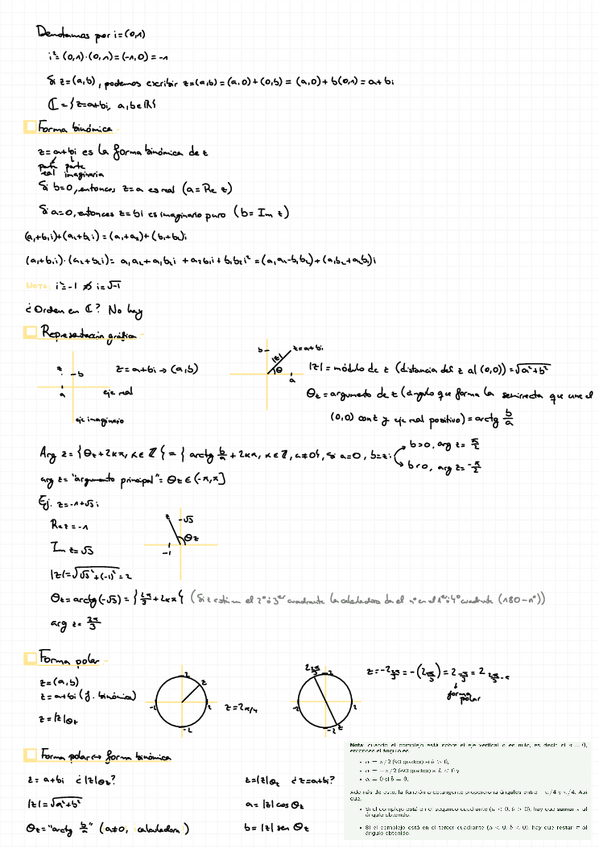 Denotamos por i = (0,1)
i² = (0,1)·(0,1) = (-1,0) = -1
Si z=(a,b), podemos escribir z=(a,b) = (a,0)+(0,b) = (a,0)+b(0,1) = a+bi
ℂ = {z=a+bi, a,b∈ℝ}
Forma binómica
z = a+bi es la forma binómica de z
parte parte
real imaginaria
Si b=0, entonces z=a es real (a = Re z)
Si a=0, entonces z=bi es imaginario puro (b = Im z)
(a₁+b₁i)+(a₂+b₂i) = (a₁+a₂)+(b₁+b₂)i
(a₁+b₁i)·(a₂+b₂i) = a₁a₂+a₁b₂i +a₂b₁i+b₁b₂i² = (a₁a₂-b₁b₂)+(a₁b₂+a₂b₁)i
Nota: i²=-1 ⇏ i=√-1
¿Orden en ℂ? No hay
Representación gráfica
z b a
z = a+bi → (a,b)
eje real
eje imaginario
b z=a+bi |z| θ a
|z| = módulo de z (distancia del z al (0,0)) = √a²+b²
θz = argumento de z (ángulo que forma la semirrecta que une el
(0,0) con z y eje real positivo) = arctg b/a
Arg z = {θz+2kπ, k∈ℤ} = { arctg b/a + 2kπ, k∈ℤ, a≠0}, Si a=0, b=z:
b>0, arg z = π/2
b<0, arg z = -π/2
arg z = "argumento principal" = θz ∈ (-π,π]
Ej. z=-1+√3i
Re z = -1
Im z = √3
|z| = √√3²+(-1)² = 2
z √3 θz -1
θz = arctg(-√3) = {2π/3 + 2kπ} (Si z está en el 2º ó 3º cuadrante la calculadora da el 1º ó 4º cuadrante (180-nº))
arg z = 2π/3
Forma polar
z=(a,b)
z=a+bi (f. binómica)
z=|z|θz
2 z -2 2 -2
z=2π/4
2 2π/3 2 -2 2 -2
z = -2 2π/3 = -(2 2π/3) = 2 2π/3 = 2 2π/3-π
forma
polar
Forma polar ↔ forma binómica
z = a+bi ¿|z|θz?
|z| = √a²+b²
θz = "arctg b/a" (a≠0, calculadora)
z=|z|θz ¿z=a+bi?
a = |z| cos θz
b = |z| sen θz
Nota: cuando el complejo está sobre el eje vertical
entonces el ángulo es
• Si el complejo está en el segundo cuadrante (a < 0, b > 0), hay que sumar π al
ángulo obtenido.
• Si el complejo está en el tercer cuadrante (a < 0, b < 0), hay que restar π al
ángulo obtenido.